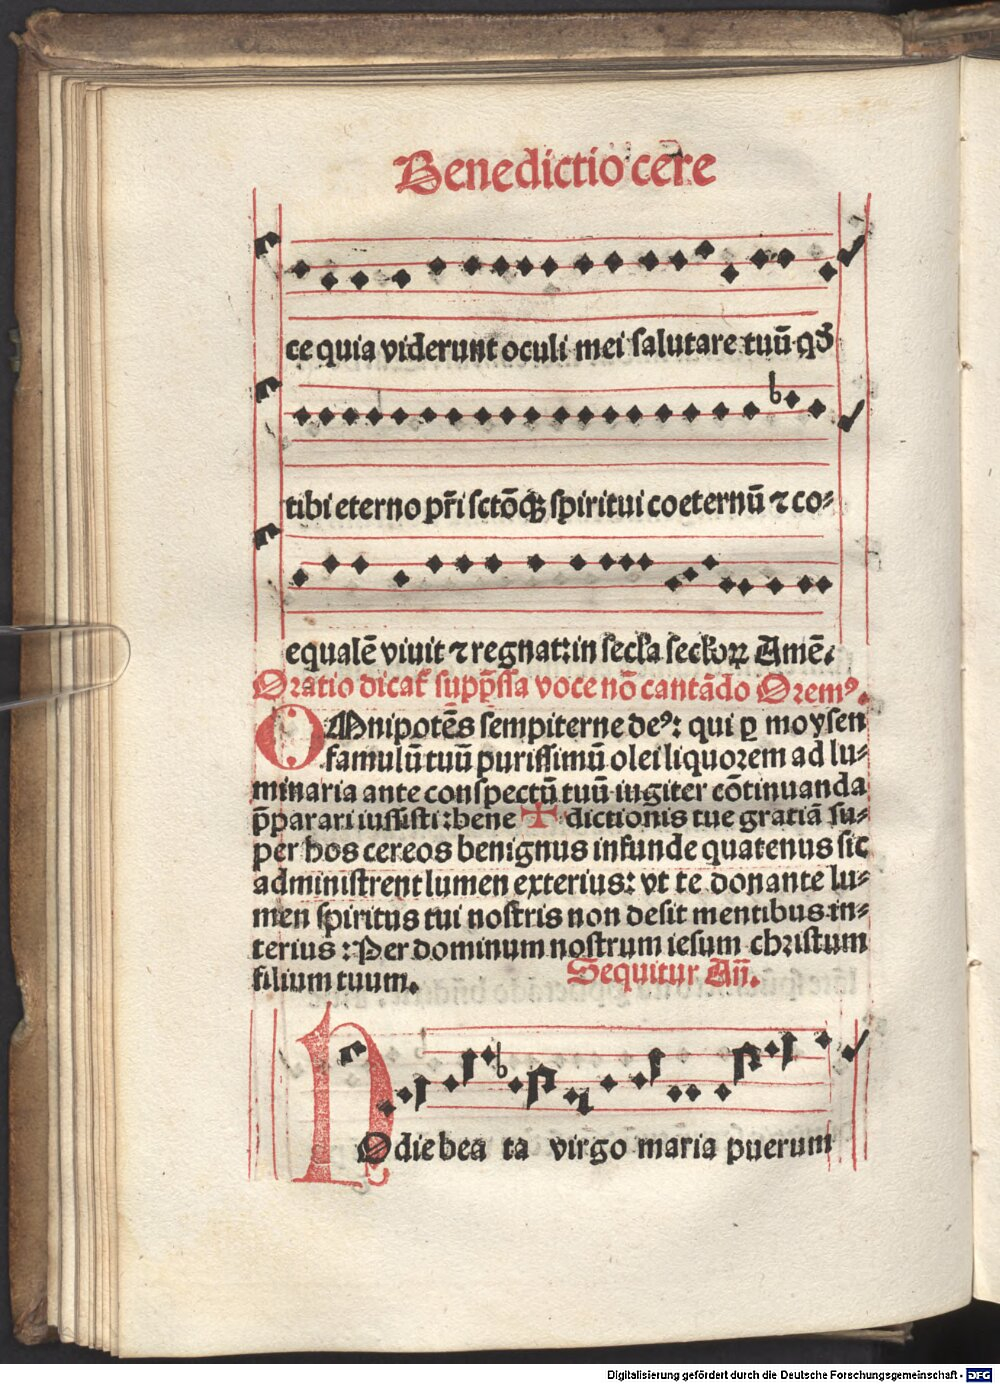 Benedictio cere
ce quia viderunt oculi mei salutare tuū qđ
tibi eterno pr̄i sctōq; spiritui coeternū ⁊ co-
equalē viuit ⁊ regnat: in secła secłoꝝ Amē.
Oratio dicat᷑ supp̄ssa voce nō cantādo Oremꝰ.
OMnipotēs sempiterne deꝰ: qui ꝑ moysen
famulū tuū purissimū olei liquorem ad lu-
minaria ante conspectū tuū iugiter cōtinuanda
p̄parari iussisti: bene ✠ dictiōis tue gratiā su-
per hos cereos benignus infunde quatenus sic
administrent lumen exterius: vt te donante lu-
men spiritus tui nostris non desit mentibus in-
terius: Per dominum nostrum iesum christum
filium tuum.
Sequitur Añ.
HOdie bea ta virgo maria puerum
Digitalisierung gefördert durch die Deutsche Forschungsgemeinschaft - DFG